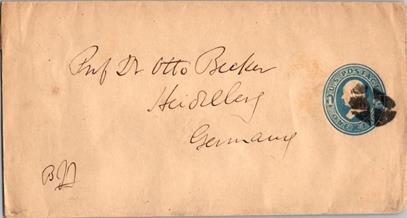 Prof Dr Otto Becker
Heidelberg
Germany
U.S. POSTAGE